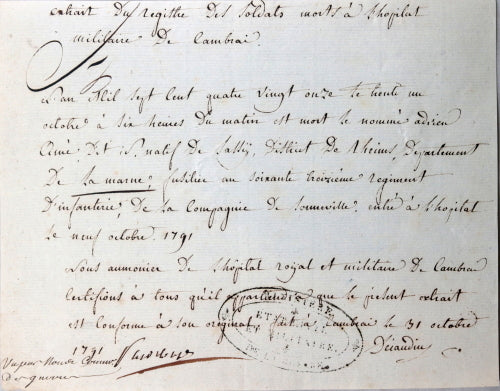 extrait du registre des soldats morts à lhopital
militaire de Cambrai.
L'an Mil sept cent quatre vingt onze le trente un
octobre à six heures du matin est mort le nommé adrien
Cimé dit St. natif de Sassÿ, district de rheims, département
de la marne, fusilier au soixante troizième regiment
d'infanterie, de la Compagnie de Senneville, entré à lhopital
le neuf octobre 1791
Nous aumonier de lhôpital royal et militaire de Cambrai
Certifions à tous qu'il appartiendra que le present extrait
est conforme à son original fait à Cambrai le 31 octobre
1791
de guerre